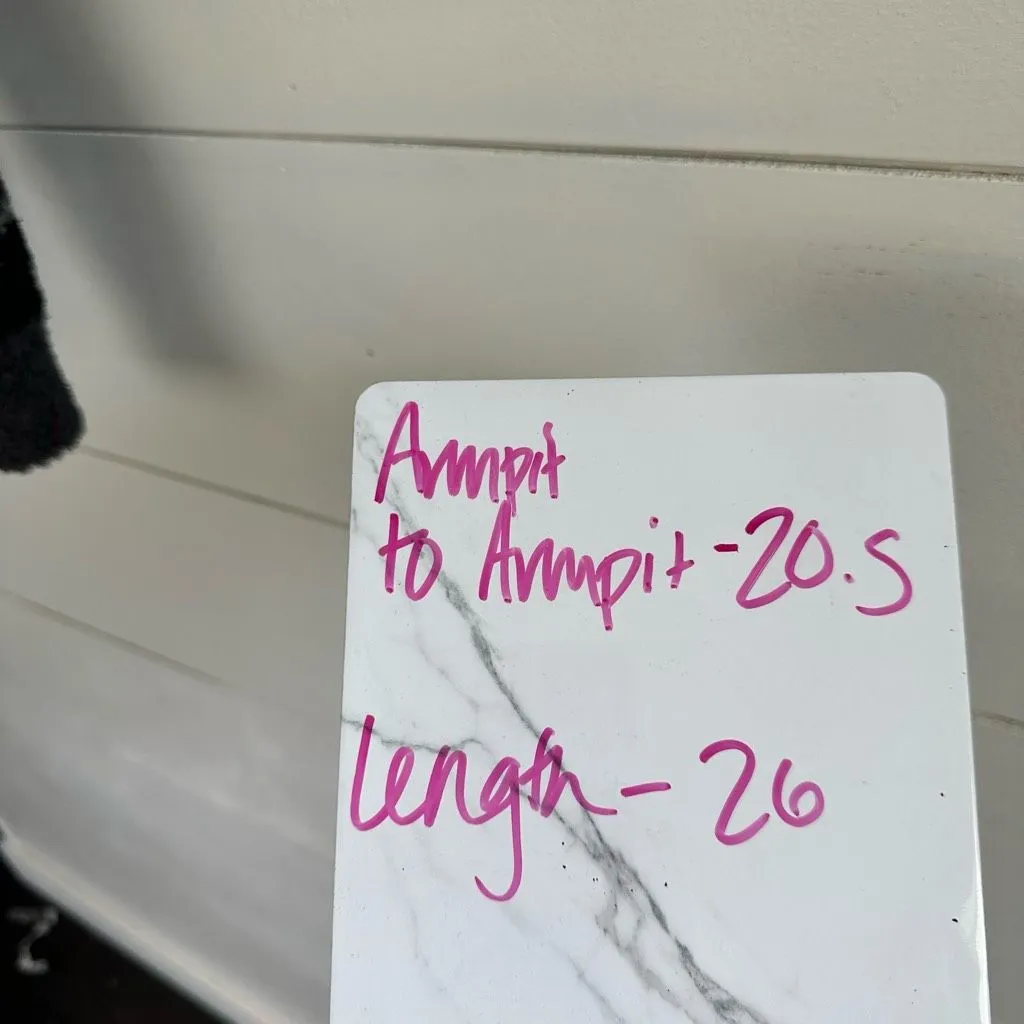 Armpit
to Armpit - 20.5
Length - 26